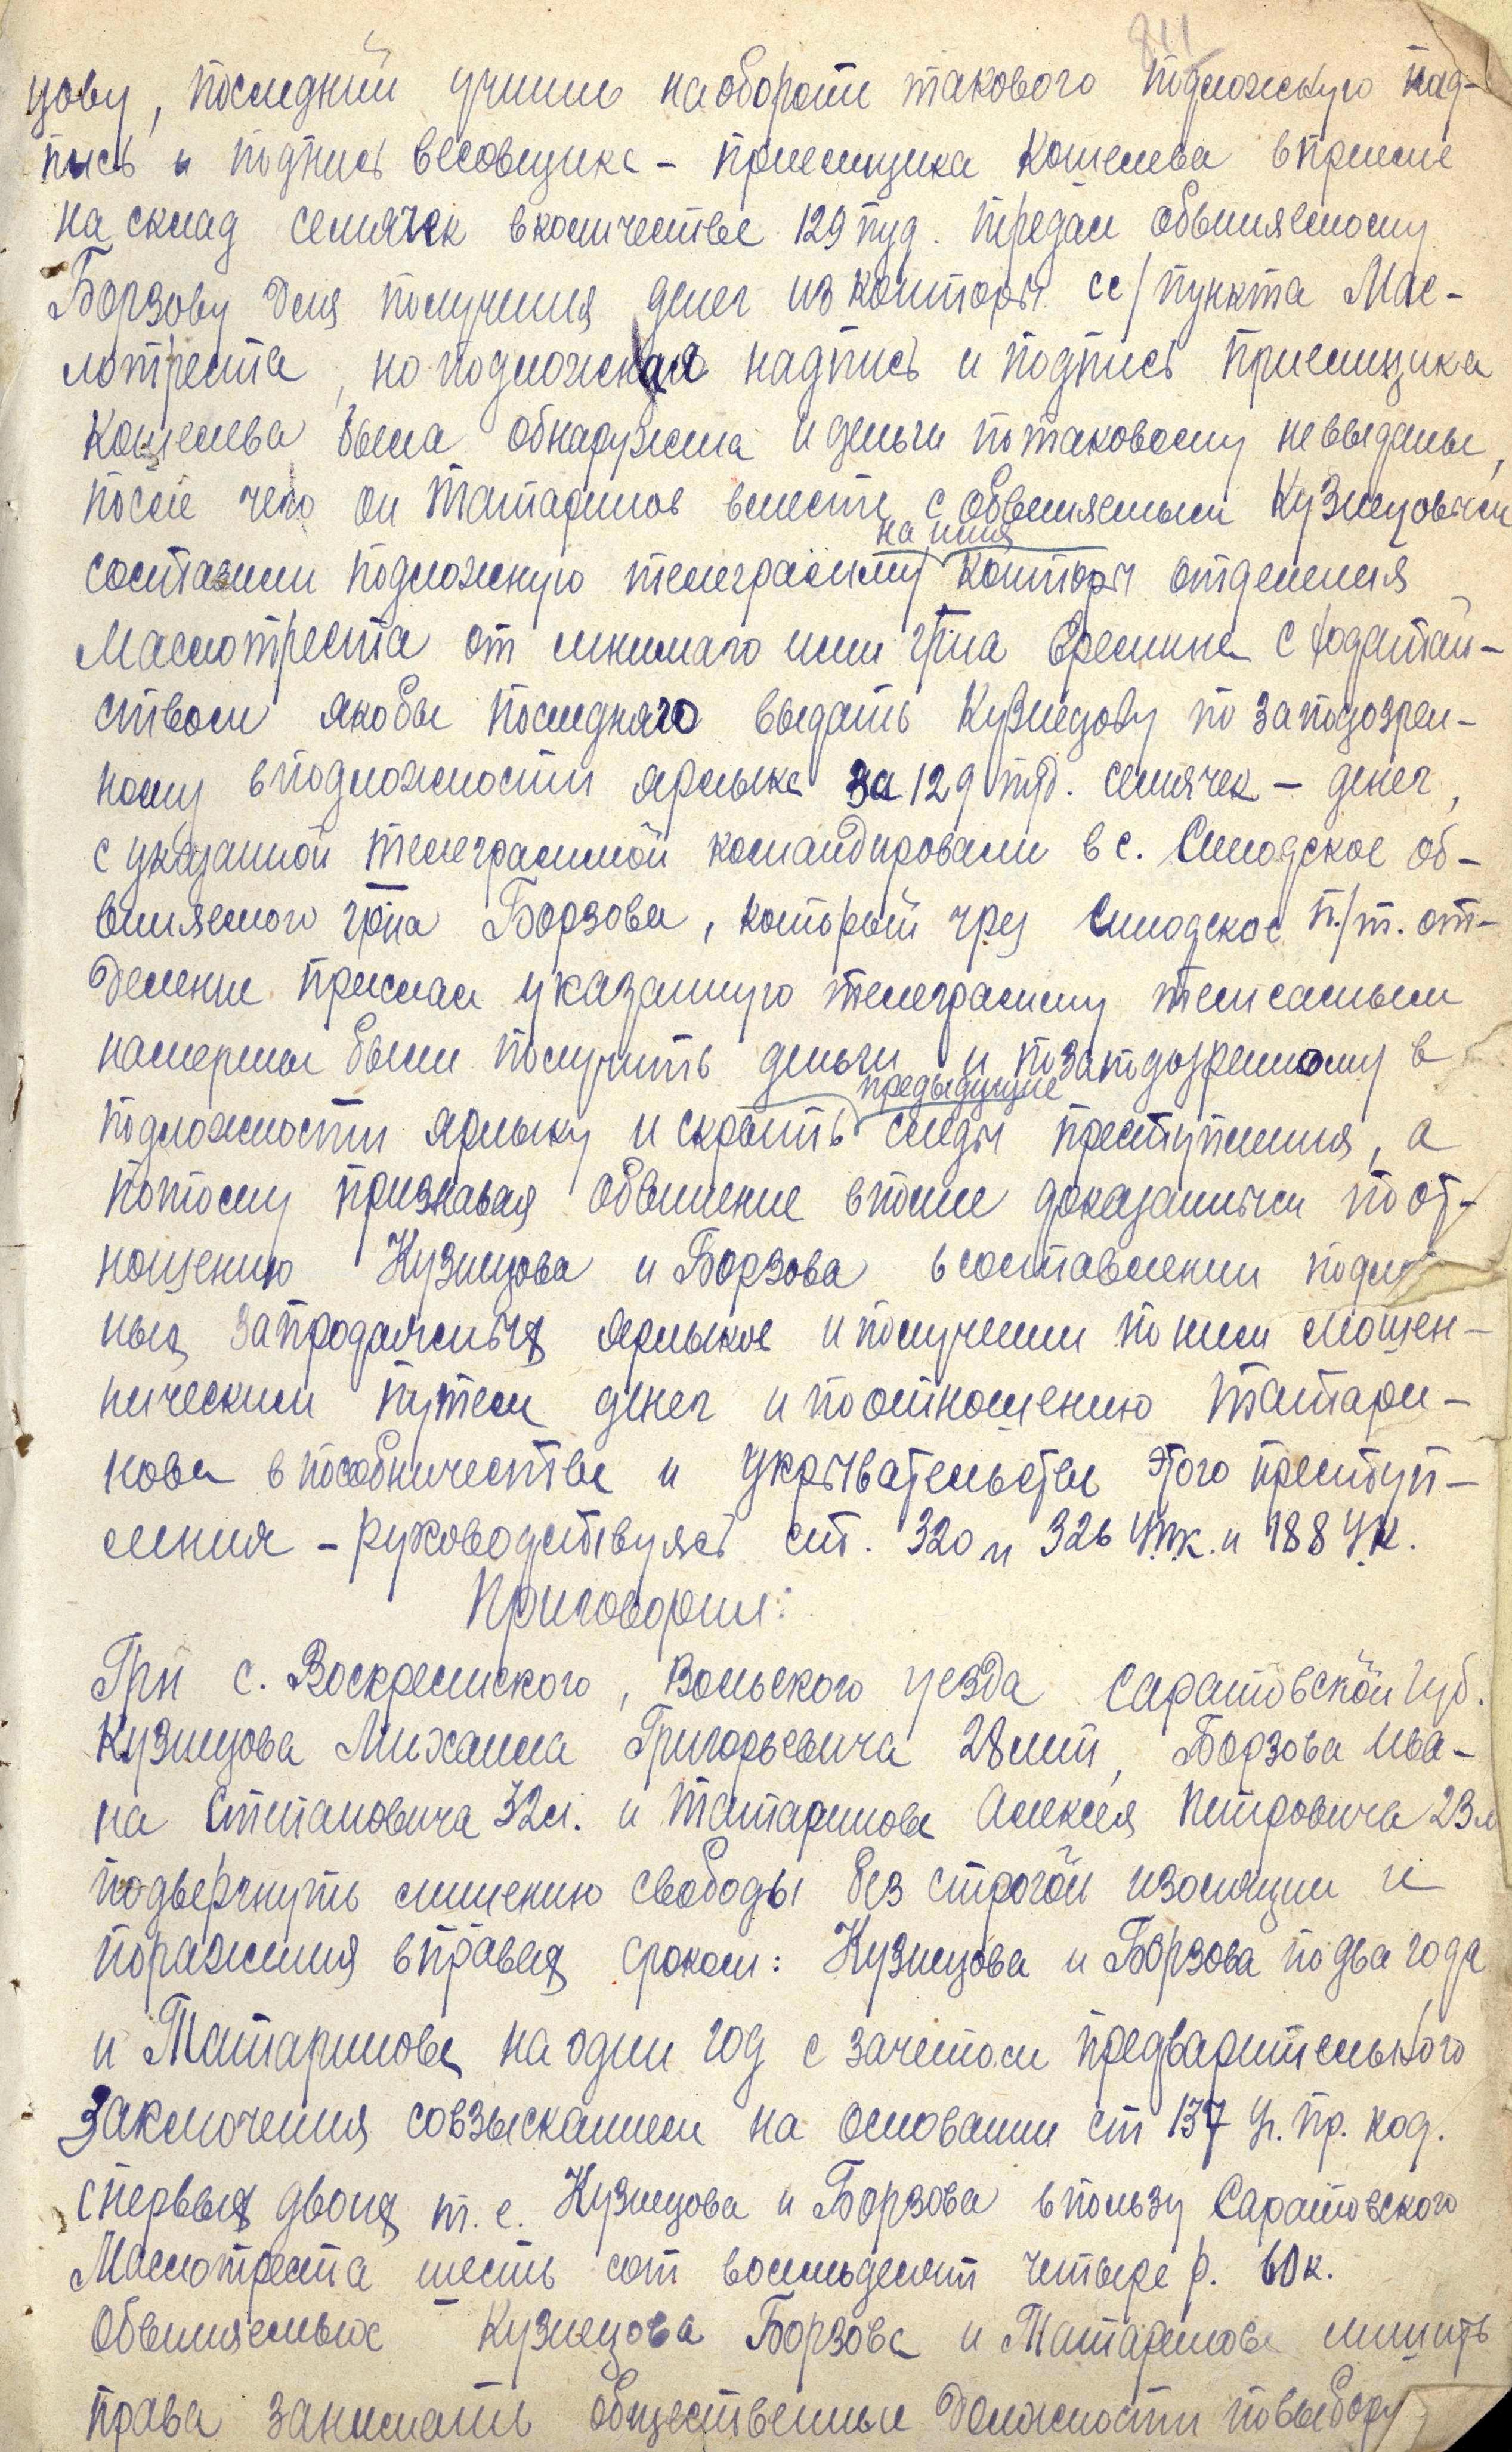 811
цову, последний учинив на обороте такового подложную над-
пись и подпись весовщика - приемщика Кошелева в приеме
на склад семячек в количестве 129 пуд. передал обвиняемому
Борзову для получения денег из конторы сс/пункта Мас-
лотреста, но подложная надпись и подпись приемщика
Кошелева была обнаружена и деньги по таковому не выданы,
после чего он Татаринов вместе с обвиняемым Кузнецовым
на имя
составили подложную телеграмму конторы отделения
Маслотреста от мнимаго имя гр-на Еремина с ходатай-
ством якобы последняго выдать Кузнецову по заподозрен-
ному в подложности ярлыка за 129 пуд. семячек - денег,
с указанной телеграммой командировали в с. Синодское об-
виняемого гр-на Борзова, который чрез Синодское п./т. от-
деление прислал указанную телеграмму тем самым
намерены были получить деньги и по заподозренному в
предыдущие
подложности ярлыку и скрыть следы преступления, а
потому признавая обвинение вполне доказанным по от-
ношению Кузнецова и Борзова в составлении подлож
ных запродажных ярлыков и получении по ним мошен-
ническим путем денег и по отношению Татари-
нова в пособничестве и укрывательстве этого преступ-
ления - руководствуясь ст. 320 и 326 УПК. и 188 УК.
Приговорил:
Гр-н с. Воскресенского, Вольского уезда Саратовской губ.
Кузнецова Михаила Григорьевича 28 лет, Борзова Ива-
на Степановича 32 л. и Татаринова Алексея Петровича 23 л
подвергнуть лишению свободы без строгой изоляции и
поражения в правах сроком: Кузнецова и Борзова по два года
и Татаринова на один год с зачетом предварительного
заключения со взысканием на основании ст 137 У. пр. код.
с первых двоих т. е. Кузнецова и Борзова в пользу Саратовского
Маслотреста шесть сот восемьдесят четыре р. 60 к.
Обвиняемых Кузнецова Борзова и Татаринова лишить
права занимать общественные должности по выбору